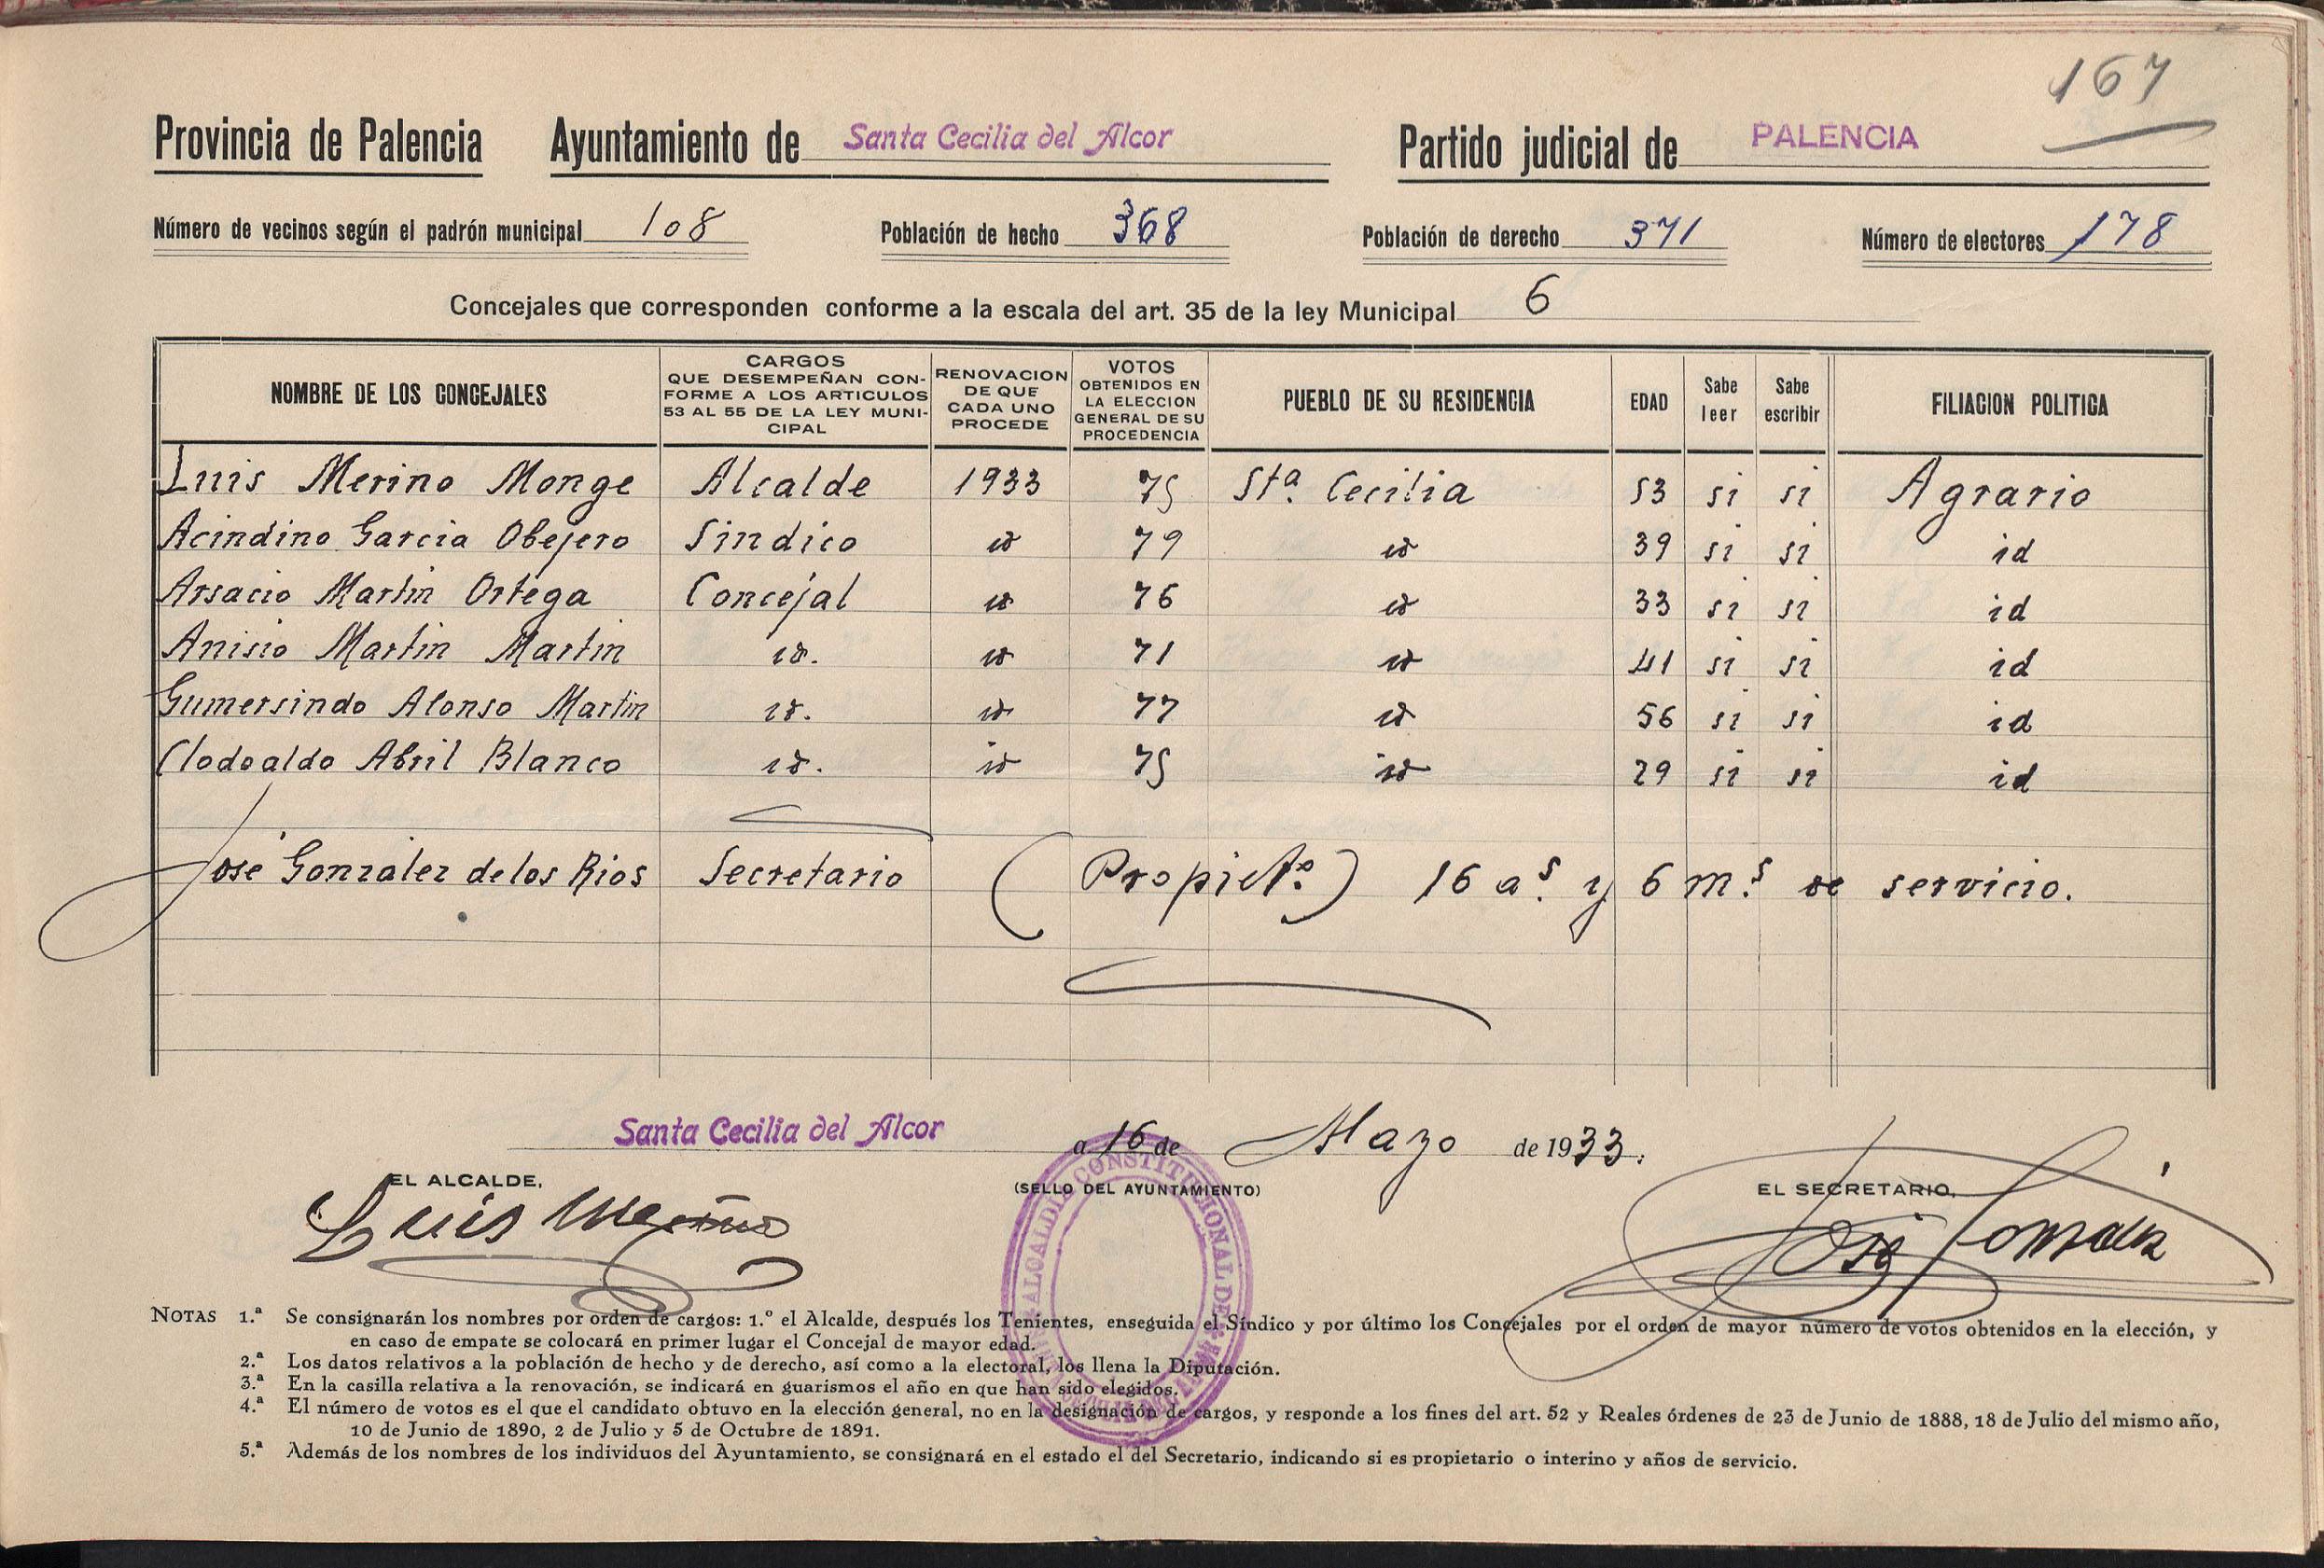 167
Provincia de Palencia Ayuntamiento de Santa Cecilia del Alcor Partido judicial de PALENCIA
Número de vecinos según el padrón municipal 108 Población de hecho 368 Población de derecho 371 Número de electores 178
Concejales que corresponden conforme a la escala del art. 35 de la ley Municipal 6
NOMBRE DE LOS CONCEJALES CARGOS QUE DESEMPEÑAN CONFORME A LOS ARTICULOS 53 AL 55 DE LA LEY MUNICIPAL RENOVACION DE QUE CADA UNO PROCEDE VOTOS OBTENIDOS EN LA ELECCION GENERAL DE SU PROCEDENCIA PUEBLO DE SU RESIDENCIA EDAD Sabe leer Sabe escribir FILIACION POLITICA
Luis Merino Monge Alcalde 1933 75 Sta. Cecilia 53 si si Agrario
Acindino Garcia Obejero Sindico id 79 id 39 si si id
Arsacio Martin Ortega Concejal id 76 id 33 si si id
Anisio Martin Martin id. id 71 id 41 si si id
Gumersindo Alonso Martin id. id 77 id 56 si si id
Clodoaldo Abril Blanco id. id 75 id 29 si si id
José González de los Rios Secretario (Propiet.º) 16 a.s y 6 m.s de servicio.
Santa Cecilia del Alcor a 16 de Mazo de 1933.
EL ALCALDE, (SELLO DEL AYUNTAMIENTO) EL SECRETARIO,
Luis Merino José González
ALCALDIA CONSTITUCIONAL DE
NOTAS 1.ª Se consignarán los nombres por orden de cargos: 1.º el Alcalde, después los Tenientes, enseguida el Síndico y por último los Concejales por el orden de mayor número de votos obtenidos en la elección, y
en caso de empate se colocará en primer lugar el Concejal de mayor edad.
2.ª Los datos relativos a la población de hecho y de derecho, así como a la electoral, los llena la Diputación.
3.ª En la casilla relativa a la renovación, se indicará en guarismos el año en que han sido elegidos.
4.ª El número de votos es el que el candidato obtuvo en la elección general, no en la designación de cargos, y responde a los fines del art. 52 y Reales órdenes de 23 de Junio de 1888, 18 de Julio del mismo año,
10 de Junio de 1890, 2 de Julio y 5 de Octubre de 1891.
5.ª Además de los nombres de los individuos del Ayuntamiento, se consignará en el estado el del Secretario, indicando si es propietario o interino y años de servicio.